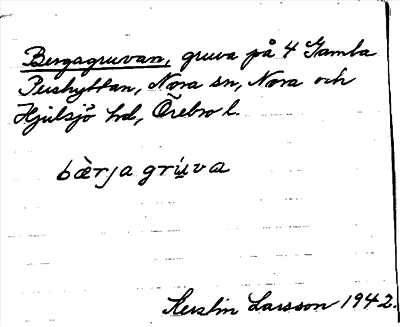 Bergagruvan, gruva på 4 Gamla
Pershyttan, Nora sn, Nora och
Hjulsjö hd, Örebro l.
bærja grùva
Kerstin Larsson 1942.